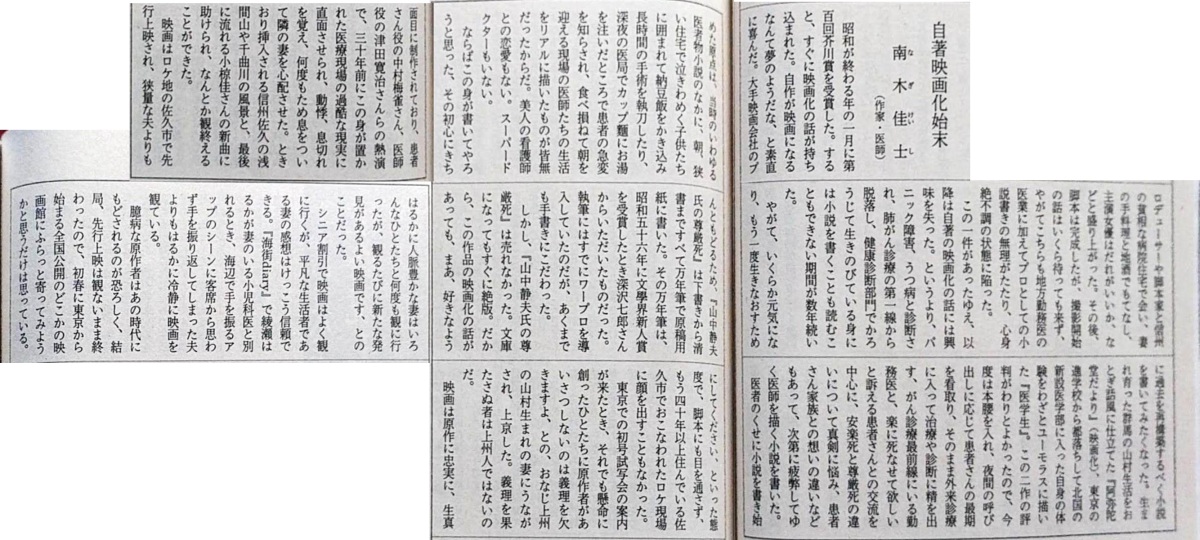 自著映画化始末
南木佳士
なぎけいし
（作家・医師）
昭和が終わる年の一月に第
百回芥川賞を受賞した。する
と、すぐに映画化の話が持ち
込まれた。自作が映画になる
なんて夢のようだな、と素直
に喜んだ。大手映画会社のプ
ロデューサーや脚本家と信州
の貧相な病院住宅で会い、妻
の手料理と地酒でもてなし、
主演女優はだれがいいか、な
どと盛り上がった。その後、
脚本は完成したが、撮影開始
の話はいくら待っても来ず、
やがてこちらも地方勤務医の
医業に加えてプロとしての小
説書きの無理がたたり、心身
絶不調の状態に陥った。
この一件があったゆえ、以
降は自著の映画化の話には興
味を失った。というより、パ
ニック障害、うつ病と診断さ
れ、肺がん診療の第一線から
脱落し、健康診断部門でかろ
うじて生きのびている身に
は小説を書くことも読むこ
ともできない期間が数年続い
た。
やがて、いくらか元気にな
り、もう一度生きなおすため
に過去を再構築するべく小説
を書いてみたくなった。生ま
れ育った群馬の山村生活をお
とぎ話風に仕立てた『阿弥陀
堂だより』（映画化）、東京の
進学校から都落ちして北国の
新設医学部に入った自身の体
験をわざとユーモラスに描い
た『医学生』。この二作の評
判がわりとよかったので、今
度は本腰を入れ、夜間の呼び
出しに応じて患者さんの最期
を看取り、そのまま外来診療
に入って治療や診断に精を出
す、がん診療最前線にいる勤
務医と、楽に死なせて欲しい
と訴える患者さんとの交流を
中心に、安楽死と尊厳死の違
いについて真剣に悩み、患者
さん家族との想いの違いなど
もあって、次第に疲弊してゆ
く医師を描く小説を書いた。
医者のくせに小説を書き始
めた原点は、当時のいわゆる
医者物小説のなかに、朝、狭
い住宅で泣きわめく子供たち
に囲まれて納豆飯をかき込み
長時間の手術を執刀したり、
深夜の医局でカップ麺にお湯
を注いだところで患者の急変
を知らされ、食べ損ねて朝を
迎える現場の医師たちの生活
をリアルに描いたものが皆無
だったからだ。美人の看護師
との恋愛もない。スーパード
クターもいない。
ならばこの身が書いてやろ
うと思った、その初心にきち
んともどるため、『山中静夫
氏の尊厳死』は下書きから清
書まですべて万年筆で原稿用
紙に書いた。その万年筆は、
昭和五十六年に文學界新人賞
を受賞したとき深沢七郎さん
からいただいたものだった。
執筆にはすでにワープロを導
入していたのだが、あくまで
も手書きにこだわった。
しかし、『山中静夫氏の尊
厳死』は売れなかった。文庫
になってもすぐに絶版。だか
ら、この作品の映画化の話が
あっても、まあ、好きなよう
にしてください、といった態
度で、脚本にも目を通さず、
もう四十年以上住んでいる佐
久市でおこなわれたロケ現場
に顔を出すこともなかった。
東京での初号試写会の案内
が来たとき、それでも懸命に
創ったひとたちに原作者があ
いさつしないのは義理を欠
きますよ、との、おなじ上州
の山村生まれの妻にうなが
され、上京した。義理を果
たさぬ者は上州人ではないの
だ。
映画は原作に忠実に、生真
面目に制作されており、患者
さん役の中村梅雀さん、医師
役の津田寛治さんらの熱演
で、三十年前にこの身が置か
れた医療現場の過酷な現実に
直面させられ、動悸、息切れ
を覚え、何度もため息をつい
て隣の妻を心配させた。とき
おり挿入される信州佐久の浅
間山や千曲川の風景と、最後
に流れる小椋佳さんの新曲に
助けられ、なんとか観終える
ことができた。
映画はロケ地の佐久市で先
行上映され、狭量な夫よりも
はるかに人脈豊かな妻はいろ
んなひとたちと何度も観に行
ったが、観るたびに新たな発
見があるよい映画です、との
ことだった。
シニア割引で映画はよく観
に行くが、平凡な生活者であ
る妻の感想はけっこう信頼で
きる。『海街diary』で綾瀬は
るかが妻のいる小児科医と別
れるとき、海辺で手を振るア
ップのシーンに客席から思わ
ず手を振り返してしまった夫
よりもはるかに冷静に映画を
観ている。
臆病な原作者はあの時代に
もどされるのが恐ろしく、結
局、先行上映は観ないまま終
わったので、初春に東京から
始まる全国公開のどこかの映
画館にふらっと寄ってみよう
かと思うだけは思っている。